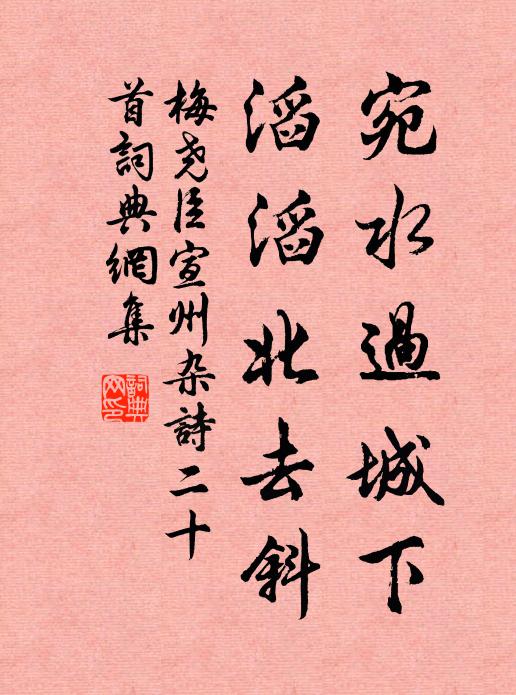 宛水過城下
滔滔北去斜
梅尧臣宣州杂詩二十
首詞典網集
詞典網印